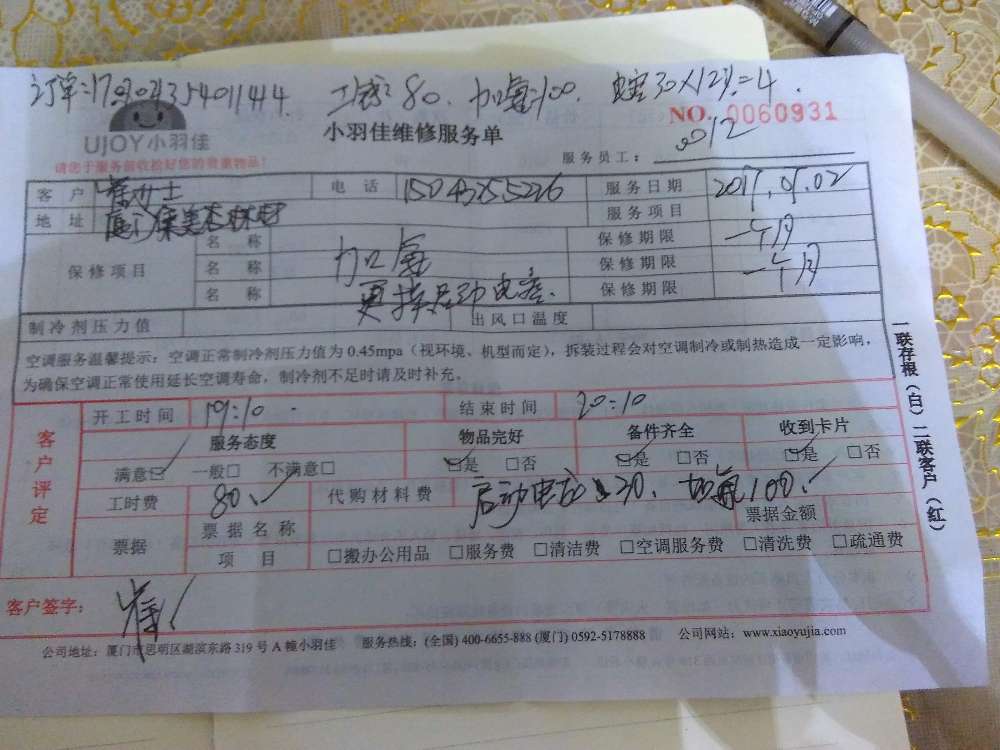 订单:
工钱:80. 加氟:100. 30×12%=4.
UJOY小羽佳
小羽佳维修服务单
NO. 0060931
请您于服务前收拾好您的贵重物品!
服务员工: 012
客户 女士 电话 服务日期 2017.09.02
地址 厦门集美杏林村 服务项目
保修项目 名称 加氟 保修期限 一个月
名称 更换启动电容. 保修期限 一个月
名称 保修期限
制冷剂压力值 出风口温度
空调服务温馨提示:空调正常制冷剂压力值为0.45mpa(视环境、机型而定),拆装过程会对空调制冷或制热造成一定影响,
为确保空调正常使用延长空调寿命,制冷剂不足时请及时补充。
客户评定
开工时间 19:10 结束时间 20:10
服务态度 物品完好 备件齐全 收到卡片
满意☑ 一般□ 不满意□ ☑是 □否 ☑是 □否 ☑是 □否
工时费 80 代购材料费 启动电容 30、加氟100、
票据 票据名称 票据金额
项目 □搬办公用品 □服务费 □清洁费 □空调服务费 □清洗费 □疏通费
客户签字:
公司地址:厦门市思明区湖滨东路319号A幢小羽佳 服务热线:(全国) 400-6655-888 (厦门) 0592-5178888 公司网站:www.xiaoyujia.com
一联存根(白) 二联客户(红)